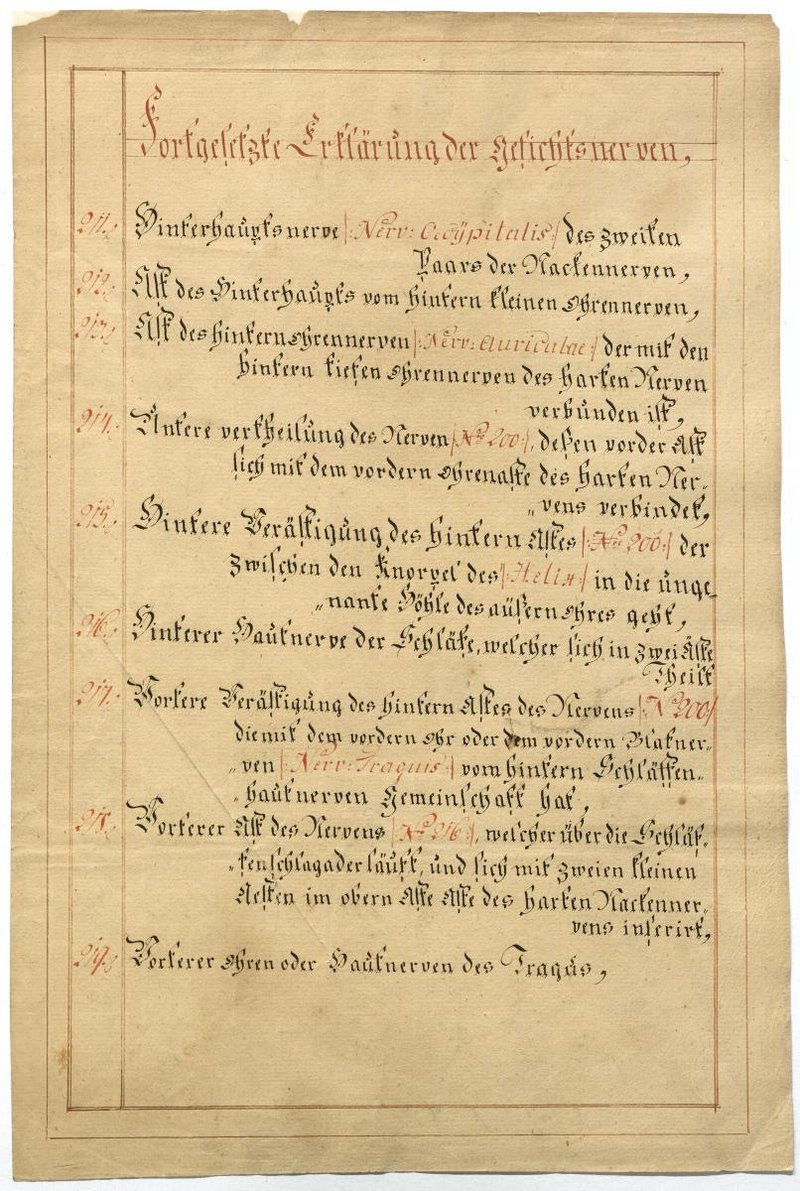 Fortgesetzte Erklärung der Gesichtsnerven,
211. Hinterhauptsnerve |: Nerv: Occÿpitalis :| des zweiten
Paars der Nackennerven,
212. Ast des Hinterhaupts vom hintern kleinen Ohrennerven,
213. Ast des hintern Ohrennerven |: Nerv: Auriculae :| der mit den
hintern tiefen Ohrennerven des harten Nerven
verbunden ist,
214. Untere vertheilung des Nerven |: No 200 :|, deßen vorder Ast
sich mit dem vordern Ohrenaste des harten Ner„
„vens verbindet,
215. Hintere Verästigung des hintern Astes |: No 200 :| der
zwischen den Knorpel des |: Helix :| in die unge„
„nante Höhle des aüsern Ohres geht,
216. Hinterer Hautnerve der Schläfe, welcher sich in zwei Äste
Theilt
217. Vortere Verästigung des hintern Astes des Nervens |: No 200 :|
die mit dem vordern Ohr oder dem vordern Blatner„
„ven |: Nerv: Traguis :| vom hintern Schläffen„
„hautnerven gemeinschaft hat,
218. Vorterer Ast des Nervens |: No 216 :|, welcher über die Schläf„
„fenschlagader läuft, und sich mit zweien kleinen
Aesten im obern Aste Aste des harten Nackenner„
vens inserirt,
219. Vorterer Ohren oder Hautnerven des Tragus,